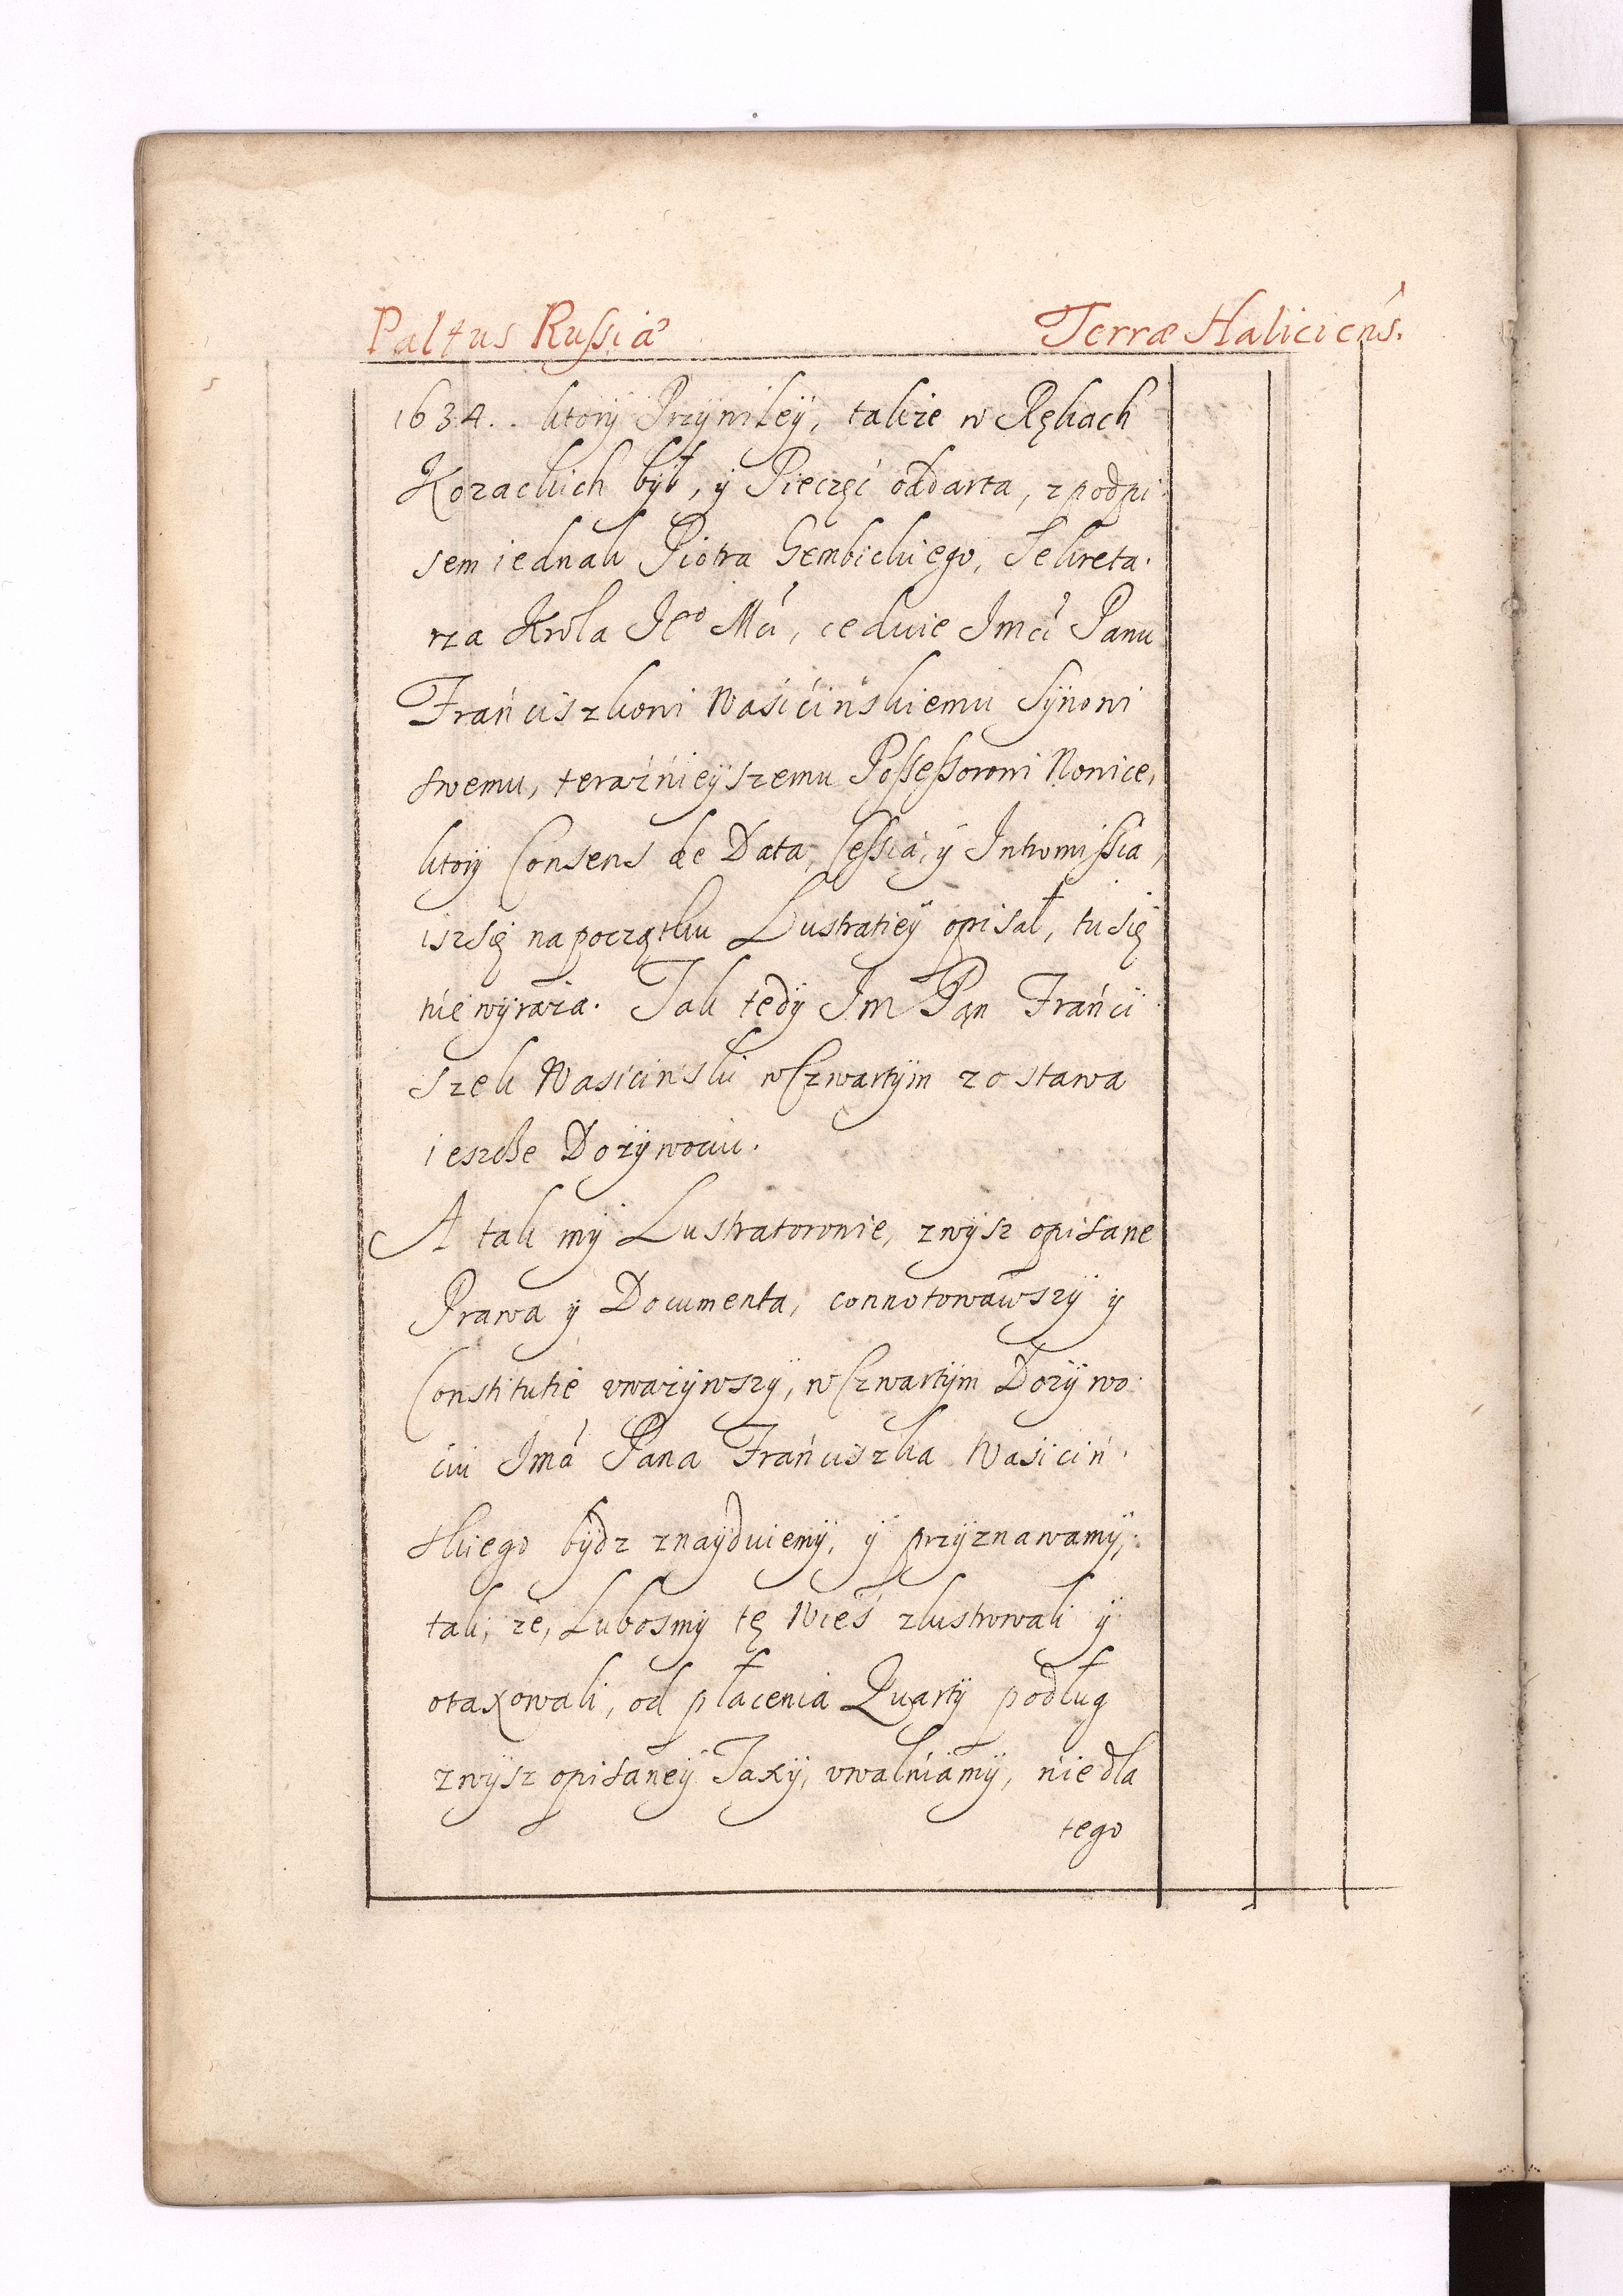 Paltus Russiæ Terræ Haliciens̃.
1634.. ktory Przywiley, także w Rękach
Kozackich był, y Pieczęć oddarta, z podpi-
sem iednak Piotra Gembickiego, Sekreta-
rza Krola Jᵒ Mći, ceduie Jmći Panu
Frańciszkowi Wasićińskiemu Synowi
swemu, teraźnieyszemu Possessorowi Nowice,
ktory Consens de Data, Cessia, y Intromissia,
isz się napoczątku Lustratiey opisał, tu się
nie wyraża. Tak tedy Jm Pan Frańci
szek Wasiciński w Czwartym zostawa
ieszcze Dożywociu.
A tak my Lustratorowie, zwysz opisane
Prawa y Documenta, connotowawszy y
Constitutie uważywszy, w Czwartym Dożywo-
ciu Jmći Pana Frańciszka Wasiciń-
skiego bydz znayduiemy, y przyznawamy,
tak, że, Lubosmy tę Wieś zlustrowali y
otaxowali, od płacenia Quarty podług
zwysz opisaney Taxy, uwalniamy, nie dla
tego